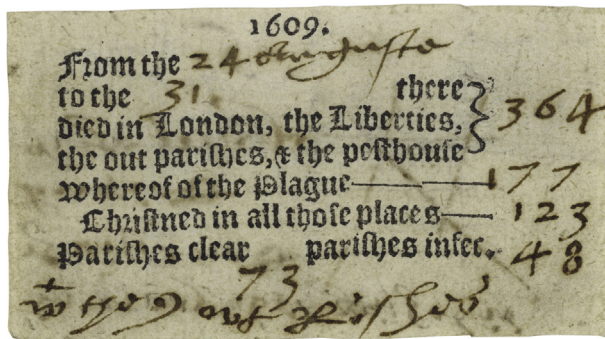 1609.
From the 24 Auguste
to the 31 there
died in London, the Liberties, 364
the out parishes, & the pesthouse
Whereof of the Plague 177
Christned in all those places 123
Parishes clear 73 parishes infec. 48
wth the 9 out Parishes